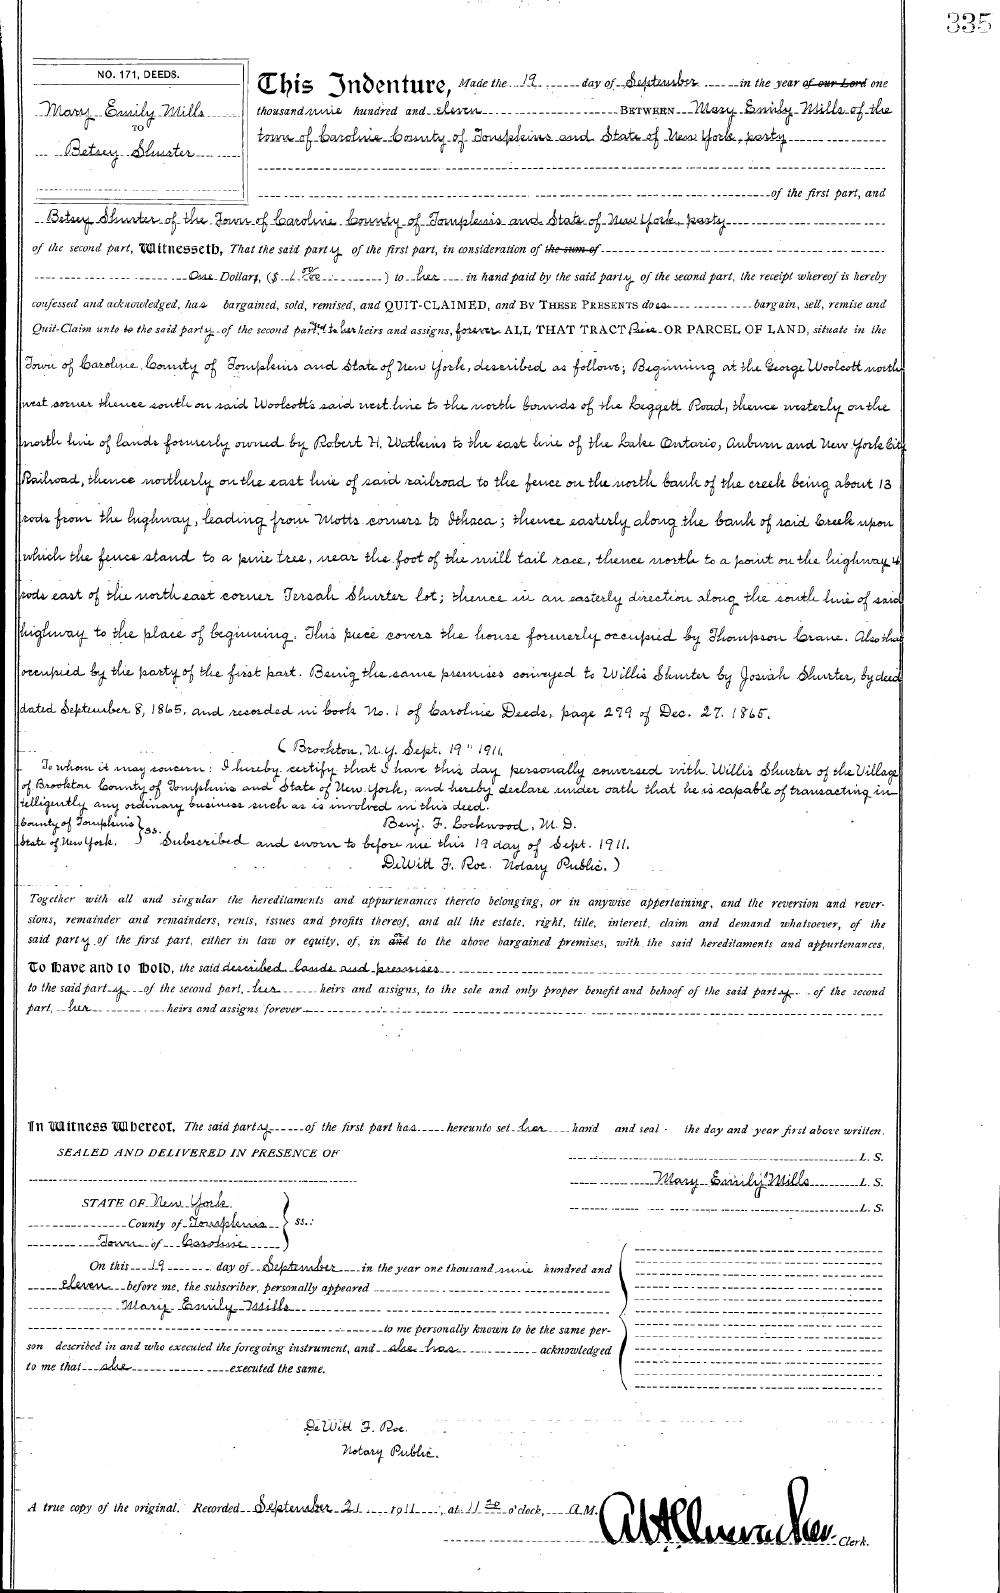 335
NO. 171, DEEDS.
Mary Emily Mills
TO
Betsey Shurter
This Indenture, Made the 19 day of September in the year of our Lord one
thousand nine hundred and eleven BETWEEN Mary Emily Mills of the
town of Caroline County of Tompkins and State of New York, party
of the first part, and
Betsey Shurter of the Town of Caroline County of Tompkins and State of New York, party
of the second part, Witnesseth, That the said party of the first part, in consideration of the sum of
One Dollar, ($ 1 00/100 ) to her in hand paid by the said party of the second part, the receipt whereof is hereby
confessed and acknowledged, has bargained, sold, remised, and QUIT-CLAIMED, and BY THESE PRESENTS does bargain, sell, remise and
Quit-Claim unto to the said party of the second part, to her heirs and assigns, forever ALL THAT TRACT Piece OR PARCEL OF LAND, situate in the
Town of Caroline, County of Tompkins and State of New York, described as follows; Beginning at the George Woolcott north
west corner thence south on said Woolcott's said west line to the north bounds of the Leggett Road, thence westerly on the
north line of lands formerly owned by Robert H. Watkins to the east line of the Lake Ontario, Auburn and New York City
Railroad, thence northerly on the east line of said railroad to the fence on the north bank of the creek being about 13
rods from the highway, leading from Motts corners to Ithaca; thence easterly along the bank of said Creek upon
which the fence stand to a pine tree, near the foot of the mill tail race, thence north to a point on the highway 4
rods east of the north east corner Tersah Shurter lot; thence in an easterly direction along the south line of said
highway to the place of beginning. This piece covers the house formerly occupied by Thompson Crane. Also that
occupied by the party of the first part. Being the same premises conveyed to Willis Shurter by Josiah Shurter, by deed
dated September 8, 1865, and recorded in book No. 1 of Caroline Deeds, page 299 of Dec. 27. 1865.
( Brookton, N.Y. Sept. 19" 1911.
To whom it may concern: I hereby certify that I have this day personally conversed with Willis Shurter of the Village
of Brookton County of Tompkins and State of New York, and hereby declare under oath that he is capable of transacting in-
telligently any ordinary business such as is involved in this deed.
County of Tompkins } Benj. F. Lockwood, M. D.
State of New York. } ss. Subscribed and sworn to before me this 19 day of Sept. 1911.
DeWitt F. Roe. Notary Public. )
Together with all and singular the hereditaments and appurtenances thereto belonging, or in anywise appertaining, and the reversion and rever-
sions, remainder and remainders, rents, issues and profits thereof, and all the estate, right, title, interest, claim and demand whatsoever, of the
said party of the first part, either in law or equity, of, in and or to the above bargained premises, with the said hereditaments and appurtenances,
To Have and to Hold, the said described lands and premises
to the said party of the second part, her heirs and assigns, to the sole and only proper benefit and behoof of the said party of the second
part, her heirs and assigns forever
In Witness Whereof, The said party of the first part has hereunto set her hand and seal the day and year first above written.
SEALED AND DELIVERED IN PRESENCE OF L. S.
Mary Emily Mills L. S.
L. S.
STATE OF New York
County of Tompkins } ss.:
Town of Caroline
On this 19 day of September in the year one thousand nine hundred and
eleven before me, the subscriber, personally appeared
Mary Emily Mills
to me personally known to be the same per-
son described in and who executed the foregoing instrument, and she has acknowledged
to me that she executed the same.
DeWitt F. Roe.
Notary Public.
A true copy of the original. Recorded September 21 1911, at 11 30 o'clock, A.M.
Clerk.